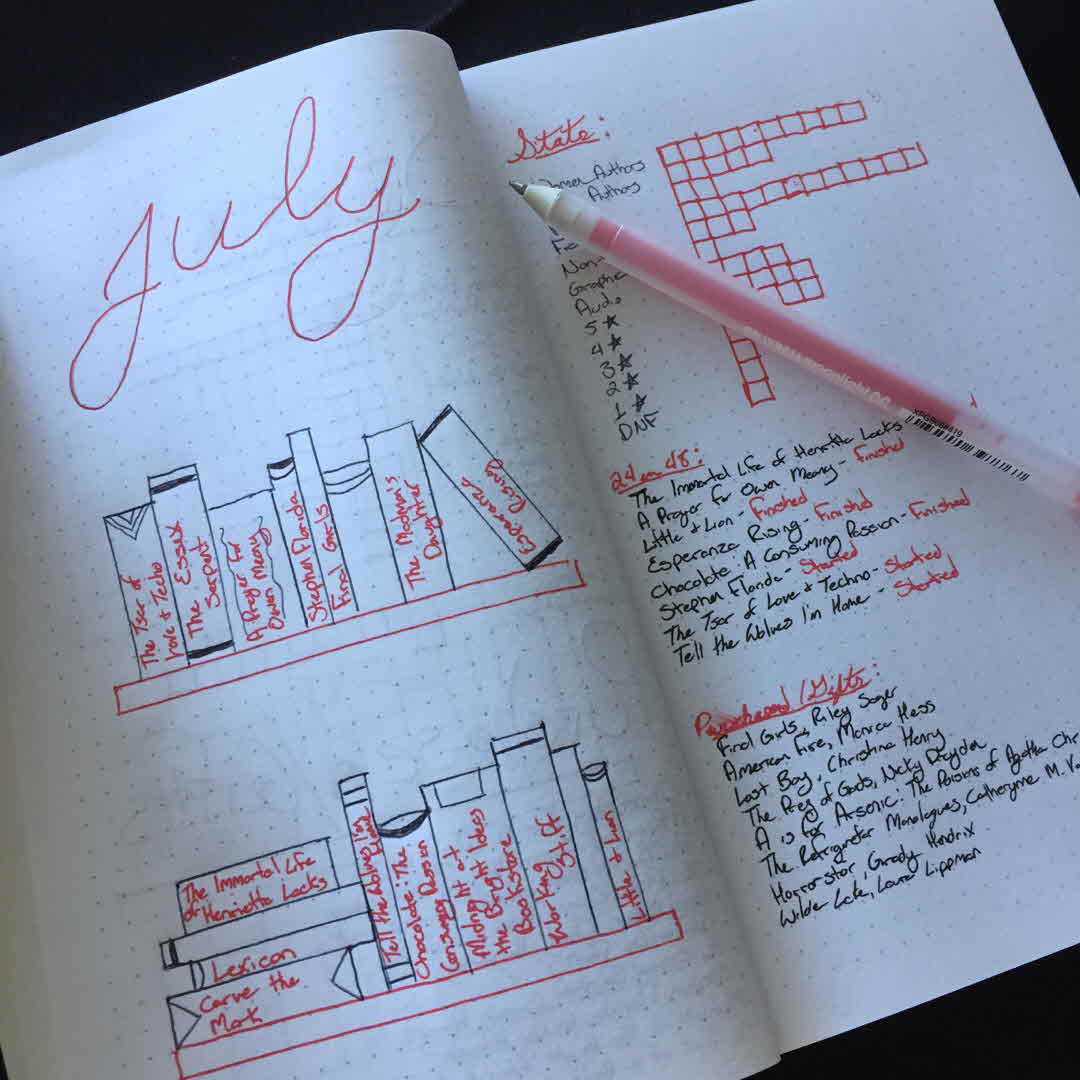 July
The Tsar of
Love & Techo
The Essex
Serpent
A Prayer for
Owen Meany
Stephen Florida
Final Girls
The Madman's
Daughter
Esperanza
Rising
The Immortal Life
of Henrietta Lacks
Lexicon
Carve the
Mark
Tell the Wolves I'm
Home
Chocolate: The
Consuming Passion
Midnight at
the Bright Ideas
Bookstore
Working
Stiff
Little & Lion
Stats:
Authors
Authors
Non-
Graphic
Audio
5★
4★
3★
2★
1★
DNF
24 in 48:
The Immortal Life of Henrietta Lacks
A Prayer for Owen Meany - Finished
Little & Lion - Finished
Esperanza Rising - Finished
Chocolate: A Consuming Passion - Finished
Stephen Florida - Started
The Tsar of Love & Techno - Started
Tell the Wolves I'm Home - Started
Purchased/Gifts:
Final Girls, Riley Sager
American Fire, Monica Hess
Lost Boy, Christina Henry
The Prey of Gods, Nicky Drayden
A is for Arsenic: The Poisons of Agatha Chr
The Refrigerator Monologues, Catherynne M. Va
Horrorstor, Grady Hendrix
Wilde Lake, Laura Lippman